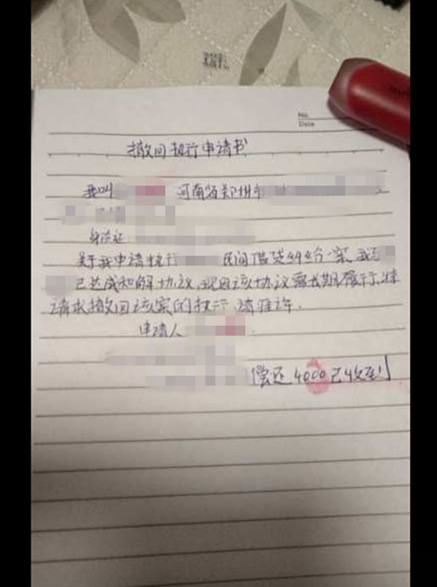 No.
Date
撤回执行申请书
我叫 河南省郑州市
身份证
关于我申请执行 民间借贷纠纷一案,我与
已达成和解协议,现因该协议需长期履行,特
请求撤回该案的执行,请准许。
申请人
偿还4000已收到